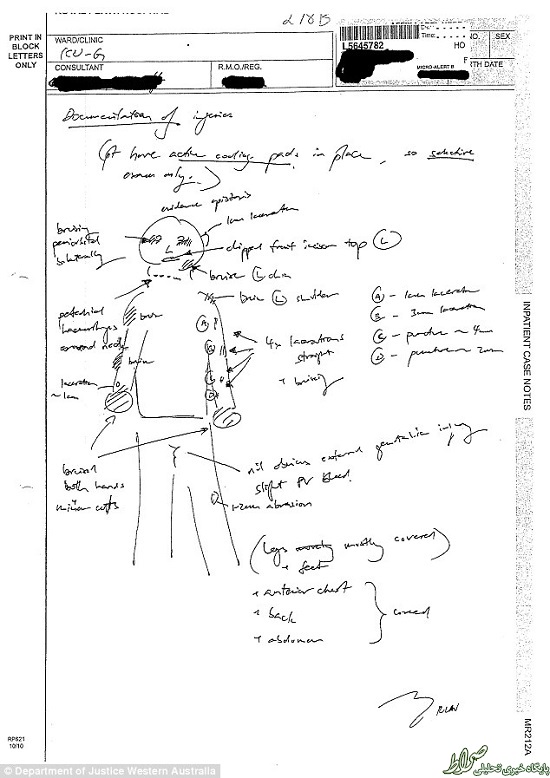 2 18 B
PRINT IN
BLOCK
LETTERS
ONLY
WARD/CLINIC
ICU-G
CONSULTANT
R.M.O./REG.
L5645782
Time:
NO.
SEX
HO
F
MICRO-ALERT B
RTH DATE
Documentation of injuries
(pt have active cooling pads in place, so selective
only.)
evidence epistaxis
1cm laceration
bruising
periorbital
bilaterally
chipped front incisor top (L)
bruise (L) chin
petechial
haemorrhages
around neck
bruise
bruise (L) shoulder
bruise
4x lacerations
straight
+ bruising
(A) - 1cm laceration
(B) - 3cm laceration
(C) - puncture ~ 4mm
(D) - puncture ~ 2mm
A
B
C
D
laceration
~1cm
bruised
both hands
minor cuts
nil obvious external genitalia injury
slight PV bleed.
1-2cm abrasion
(legs mostly covered)
+ feet
+ anterior chest
+ back
+ abdomen
covered
INPATIENT CASE NOTES
MR212A
RP521
10/10
© Department of Justice Western Australia
صراط
پایگاه خبری تحلیلی